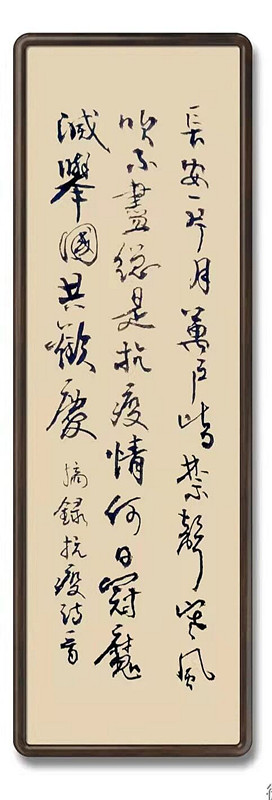 長安一片月萬戶皆禁聲寒風
吹不盡總是抗疫情何日冠魔
滅舉國共歡慶
摘錄抗疫詩一首